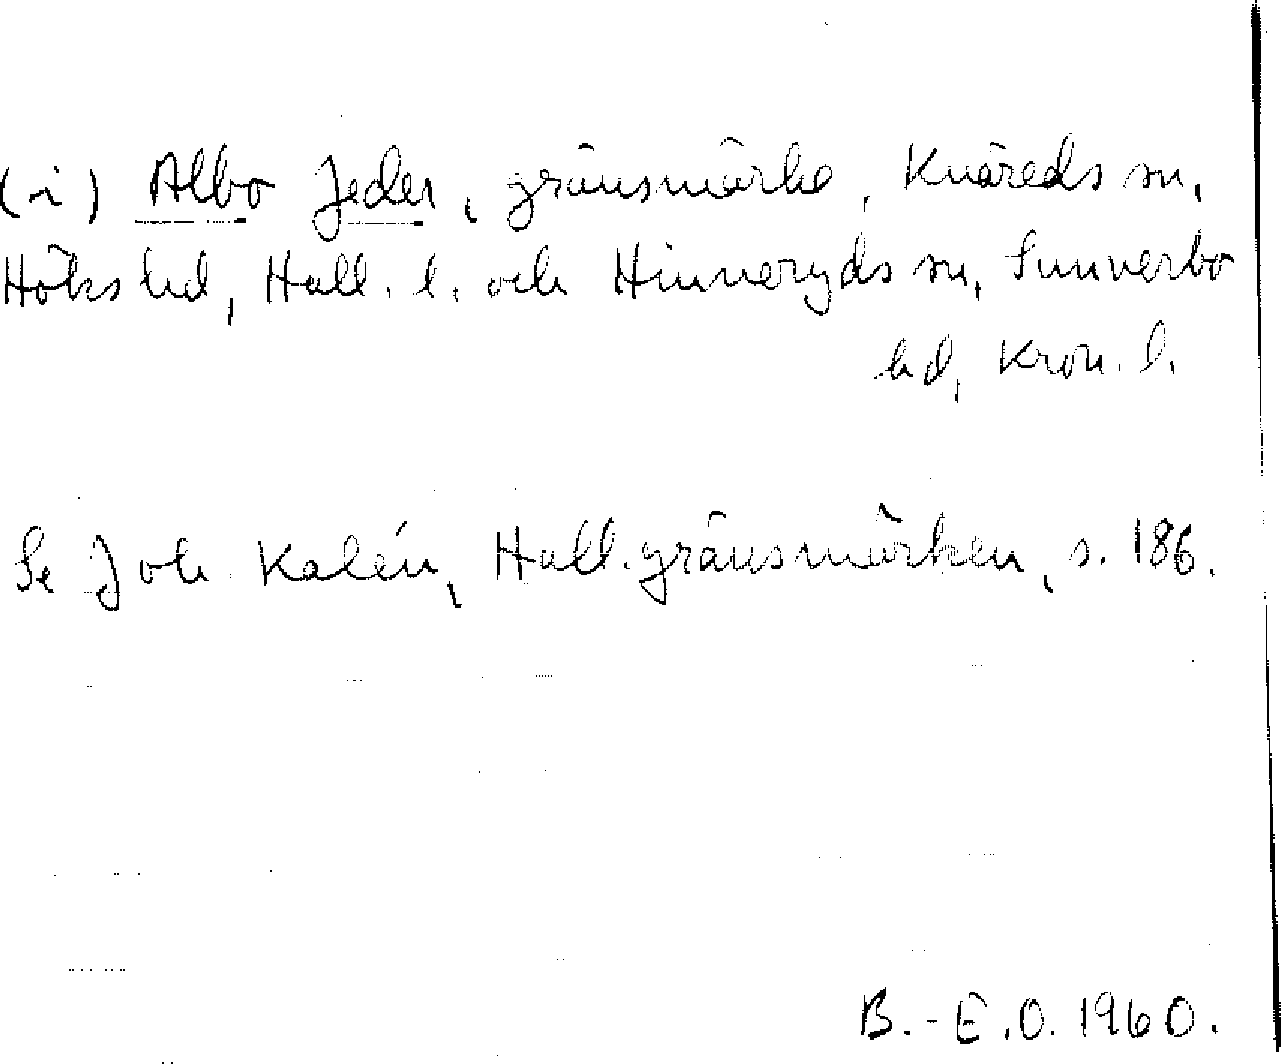 (i) Albo Jeder, gränsmärke, Knäreds sn,
Höks hd, Hall. l. och Hinneryds sn, Sunnerbo
hd, Kron. l.
Se Joh. Kalén, Hall. gränsmärken, s. 186.
B.-E.O. 1960.